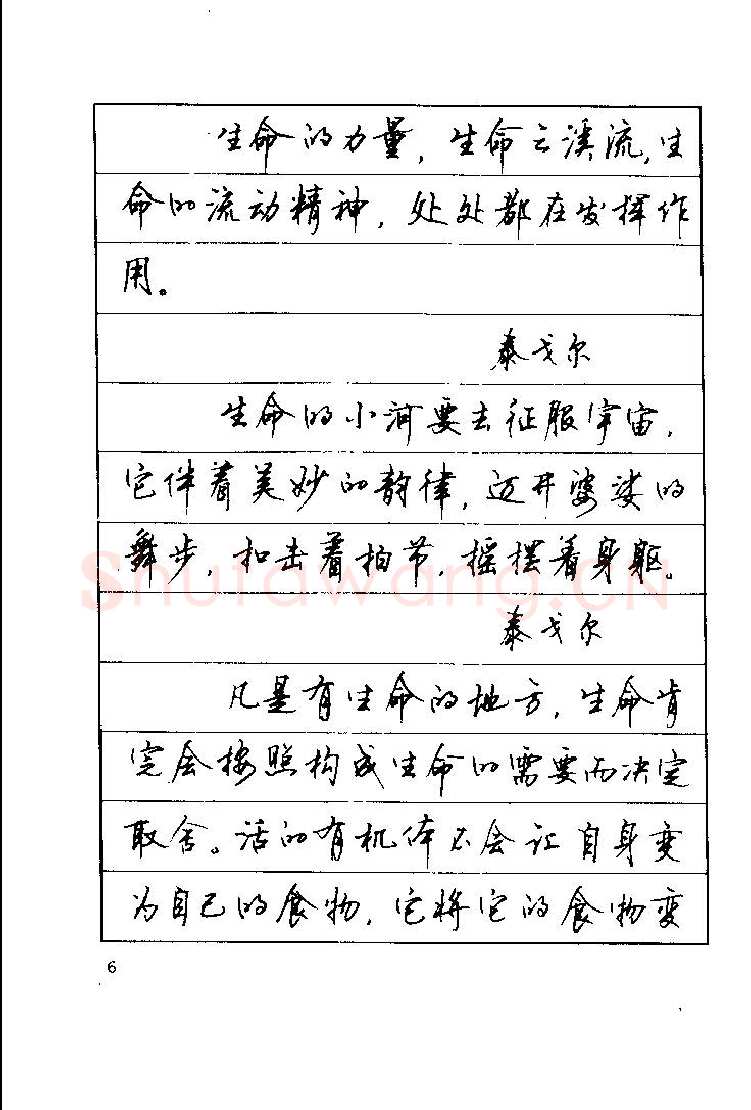 生命的力量，生命之溪流，生
命的流动精神，处处都在发挥作
用。
泰戈尔
生命的小河要去征服宇宙，
它伴着美妙的韵律，迈开婆娑的
舞步，扣击着拍节，摇摆着身躯。
Shufawang.CN
泰戈尔
凡是有生命的地方，生命肯
定会按照构成生命的需要而决定
取舍。活的有机体不会让自身变
为自己的食物，它将它的食物变
6